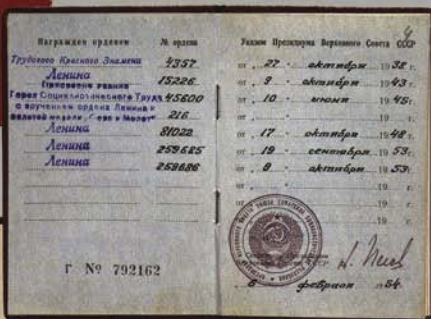 4
Награжден орденом № ордена
Трудового Красного Знамени 4357
Ленина 15226
Присвоено звание
Героя Социалистического Труда 45600
с вручением ордена Ленина и
золотой медали „Серп и Молот" 216
Ленина 81022
Ленина 259685
Ленина 259686
Г № 792162
Указом Президиума Верховного Совета СССР
от „ 27 " октября 1938 г.
от „ 9 " октября 1943 г.
от „ 10 " июня 1945 г.
от „ 17 " октября 1948 г.
от „ 19 " сентября 1953 г.
от „ 9 " октября 1953 г.
от „ " 19 г.
от „ " 19 г.
от „ " 19 г.
СССР
„ 6 " февраля 1954 г.